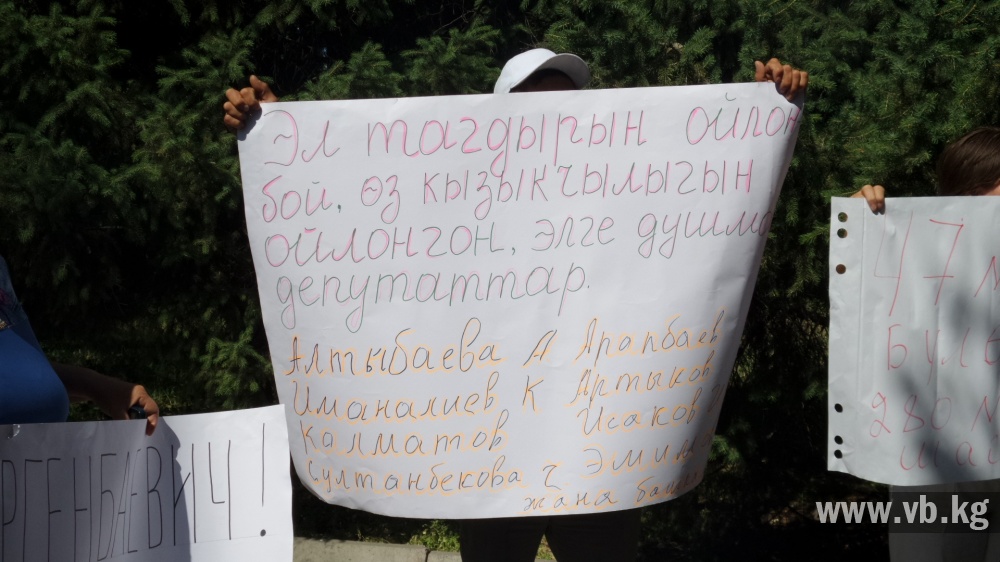 Эл тагдырын ойлон
бой, өз кызыкчылыгын
ойлонгон, элге душма
депутаттар.
Алтыбаева А Арапбаев
Иманалиев К Артыков
Калматов Исаков
Султанбекова Ч Эмил
жана баш
РГЕНБАЕВИЧ!
47 м
Буле
280 м
www.vb.kg